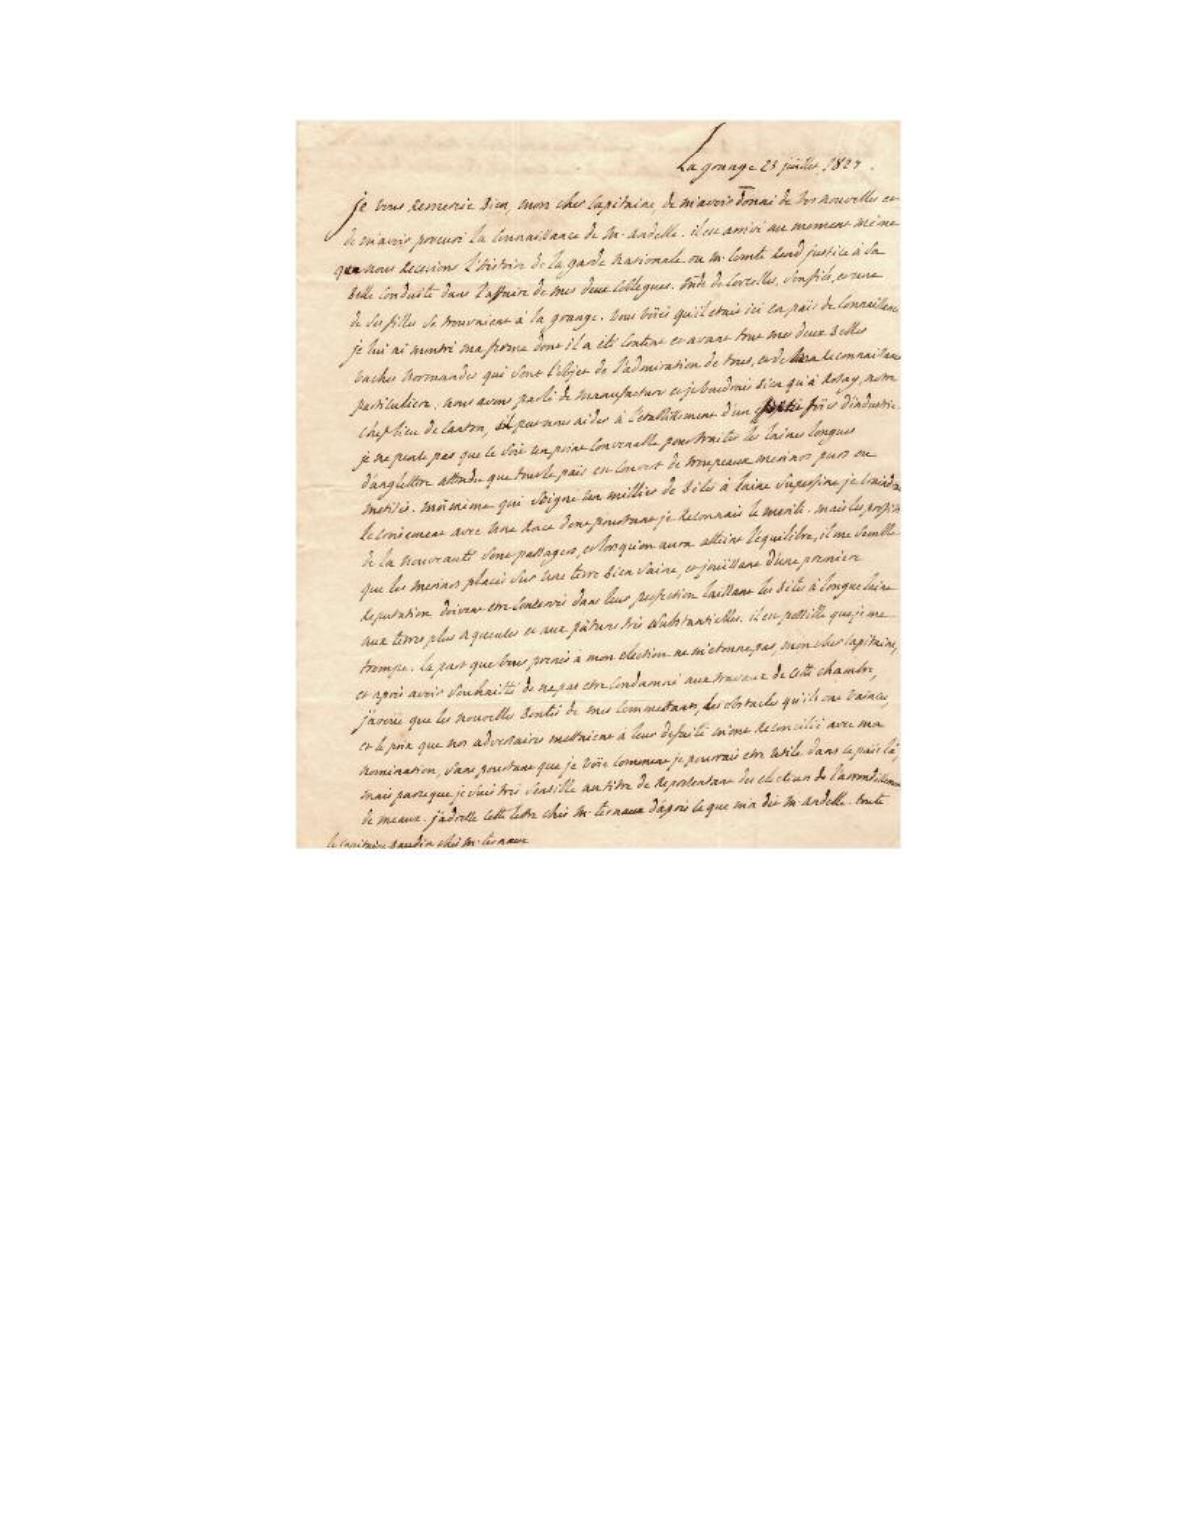 La grange 23 juillet 1827.
je vous remercie bien, mon cher Capitaine, de m'avoir donné de vos nouvelles et
de m'avoir procuré la Connaissance de M. Ardelle. il est arrivé au moment même
que nous recevions l'histoire de la garde Nationale ou M. Comte rend justice à Sa
belle Conduite dans l'affaire de mes deux Collegues. de Corcelles, son fils, et une
de Ses filles Se trouvaient à la grange. vous voiés qu'il etait ici en païs de Connaissance
je lui ai montré ma ferme dont il a été Content et avant tout mes deux belles
vaches Normandes qui Sont l'objet de l'admiration de tous, et de ma reconnaissance
particuliere. nous avons parlé de manufacture et je voudrais bien qu'à Rosay, notre
chef lieu de Canton, il put nous aider à l'etablissement d'un d'industrie.
je ne pense pas que ce Soit un point Convenable pour traiter les laines longues
d'anglettre attendu que tout le païs est Couvert de troupeaux merinos purs ou
metis. moi même qui Soigne un millier de bêtes à laine Superfine je
le croisement avec une race dont pourtant je reconnais le merite. mais les profits
de la nouveauté Sont passagers, et lorsqu'on aura atteint l'equilibre, il me Semble
que les merinos placés Sur une terre bien Saine, et joüissant d'une premiere
reputation doivent etre Conservés dans leur perfection laissant les bêtes à longue laine
aux terres plus aqueuses et aux pâtures très Substantielles. il est possible que je me
trompe. la part que vous prenés à mon election ne m'etonne pas, mon cher Capitaine,
et après avoir Souhaité de ne pas etre Condamné aux travaux de cette chambre,
j'avoüe que les nouvelles bontés de mes Commettants, les obstacles qu'ils ont vaincu,
et le prix que nos adversaires mettaient à leur defaite m'ont reconcilié avec ma
nomination, Sans pourtant que je voïe Comment je pourrais etre utile dans ce païs là,
mais parceque je Suis très Sensible au titre de representant des electeurs de l'arrondissement
de meaux. j'adresse cette lettre chés M. ternaux d'après ce que m'a dit M. Ardelle. toute
le Capitaine Baudin chés M. ternaux